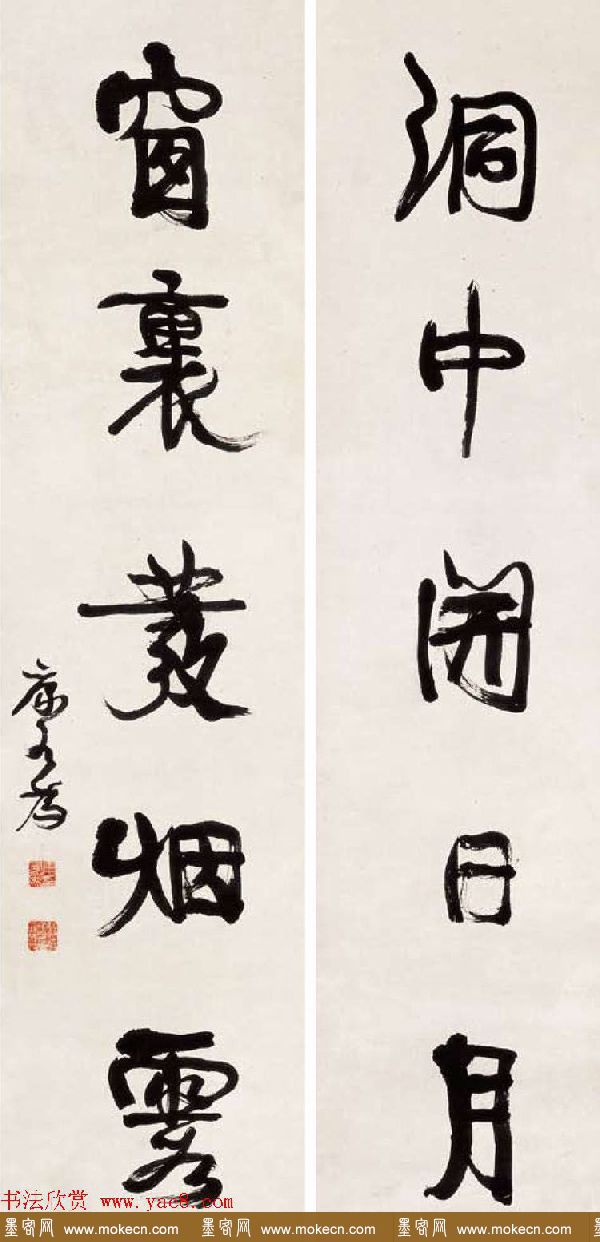 洞中開日月
窗裏發烟霞
康有為
书法欣赏 www.yac8.com
墨客网 www.mokecn.com 墨客网 www.mokecn.com 墨客网 www.mokecn.com